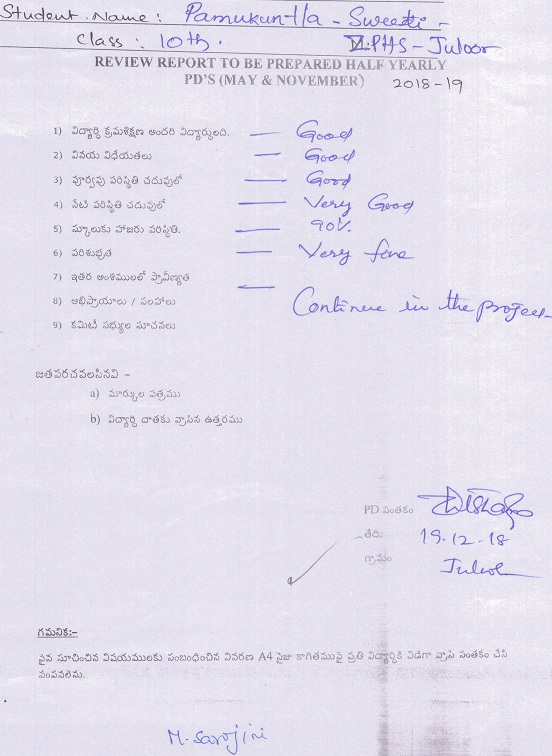 Student Name : Pamukuntla - Sweeti -
Class : 10th. Z.PHS - Juloor
REVIEW REPORT TO BE PREPARED HALF YEARLY
PD'S (MAY & NOVEMBER) 2018-19
1) విద్యార్థి క్రమశిక్షణ అందరి విద్యార్థులది. — Good
2) వినయ విధేయతలు — Good
3) పూర్వపు పరిస్థితి చదువులో — Good
4) నేటి పరిస్థితి చదువులో — Very Good
5) స్కూలుకు హాజరు పరిస్థితి. — 90%.
6) పరిశుభ్రత — Very fine
7) ఇతర అంశములలో ప్రావీణ్యత —
8) అభిప్రాయాలు / సలహాలు Continue in the project
9) కమిటీ సభ్యుల సూచనలు
జతపరచవలసినవి -
a) మార్కుల పత్రము
b) విద్యార్థి దాతకు వ్రాసిన ఉత్తరము
PD సంతకం
తేది. 19.12.18
గ్రామం Juloor
గమనిక:-
పైన సూచించిన విషయములకు సంబంధించిన వివరణ A4 సైజు కాగితముపై ప్రతి విద్యార్థికి విడిగా వ్రాసి సంతకం చేసి
పంపవలెను.
M. Sarojini